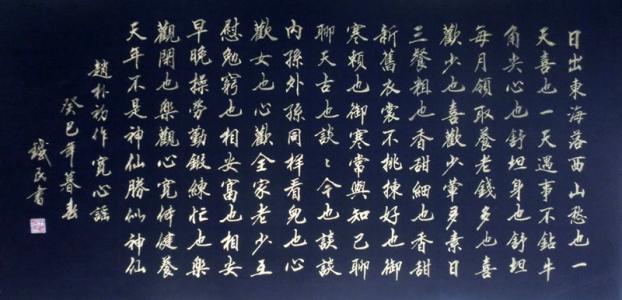 日出東海落西山愁也一
天喜也一天遇事不鉆牛
角尖心也舒坦身也舒坦
每月領取養老錢多也喜
歡少也喜歡少葷多素日
三餐粗也香甜細也香甜
新舊衣裳不挑揀好也御
寒賴也御寒常與知己聊
聊天古也談〻今也談談
內孫外孫同樣看兒也心
歡女也心歡全家老少互
慰勉窮也相安富也相安
早晚操勞勤鍛練忙也樂
觀閑也樂觀心寬体健養
天年不是神仙勝似神仙
趙朴初作寬心謠
癸巳年暮春
民書